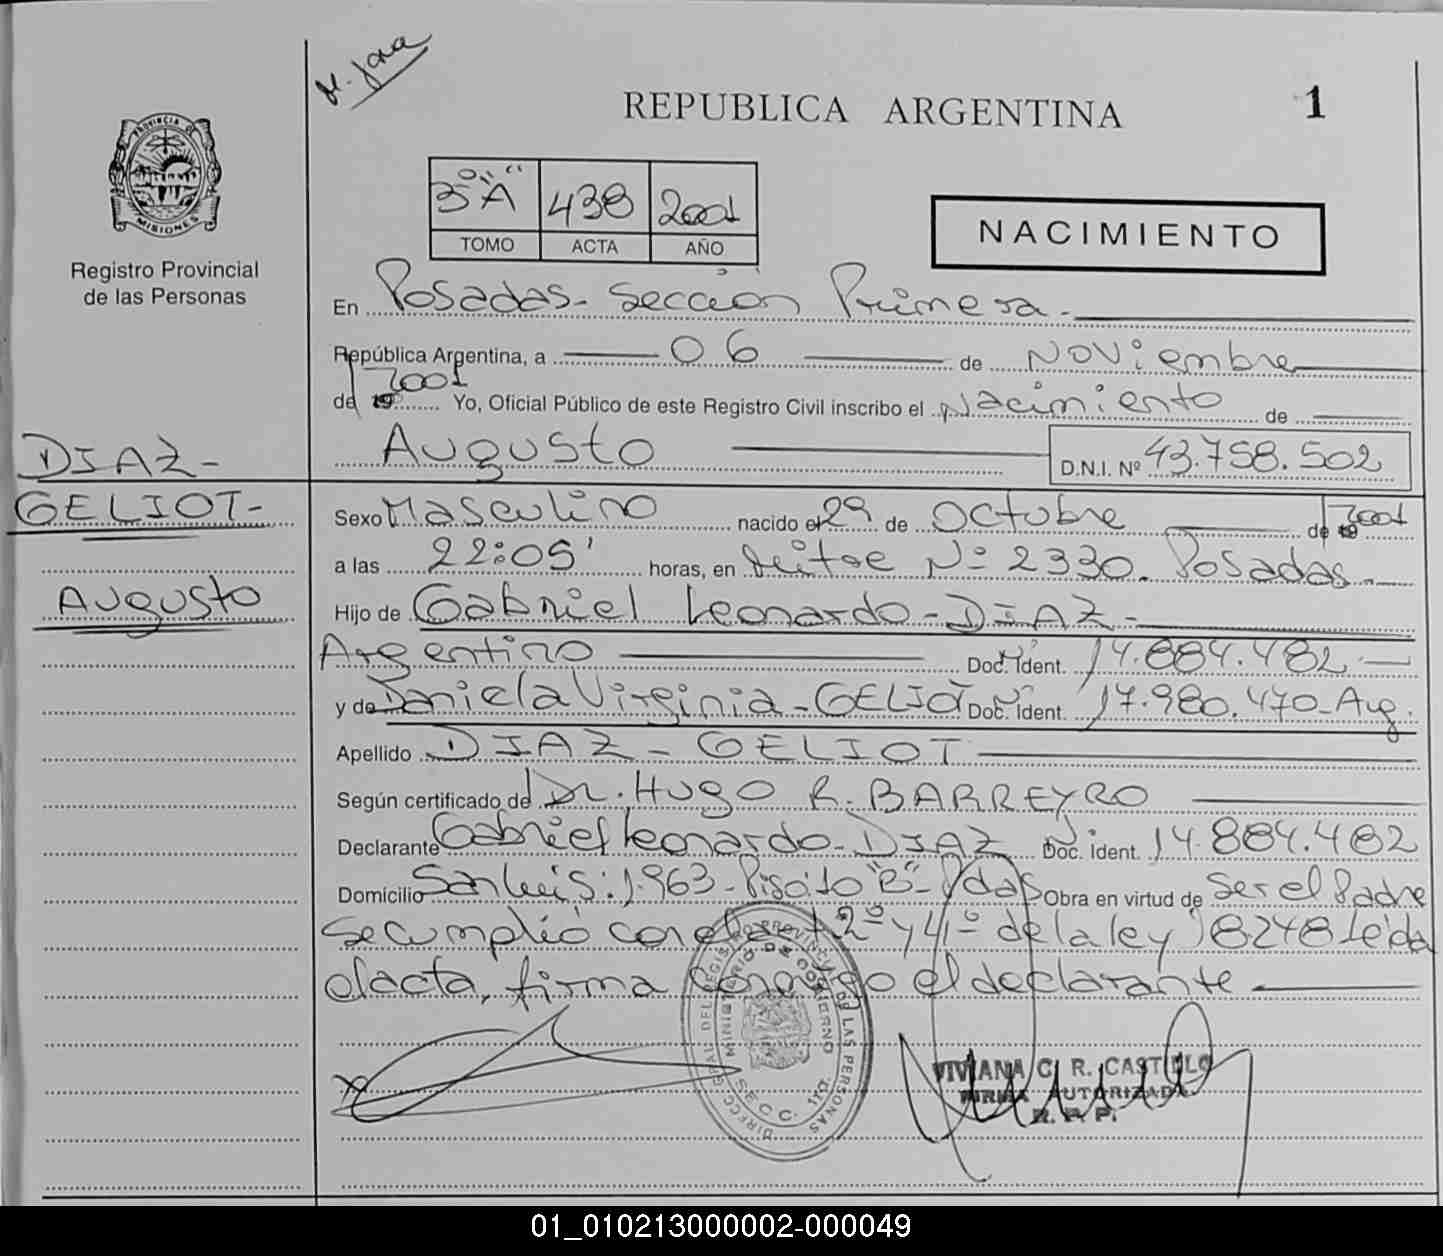 REPUBLICA ARGENTINA
1
PROVINCIA DE
MISIONES
Registro Provincial
de las Personas
3º "A" 438 2001
TOMO ACTA AÑO
NACIMIENTO
En Posadas - Sección Primera -
República Argentina, a 06 de Noviembre
de 19 2001 Yo, Oficial Público de este Registro Civil inscribo el Nacimiento de
Augusto D.N.I. Nº 43.758.502
DIAZ -
GELIOT -
Augusto
Sexo Masculino nacido el 29 de Octubre de 19 2001
a las 22:05' horas, en Mitre Nº 2330. Posadas -
Hijo de Gabriel Leonardo - DIAZ -
Argentino Doc. Ident. 14.884.482 -
y de Daniela Virginia - GELIOT Doc. Ident. 17.980.470 - Arg.
Apellido DIAZ - GELIOT
Según certificado de Dr. Hugo R. BARREYRO
Declarante Gabriel Leonardo - DIAZ Doc. Ident. 14.884.482
Domicilio San Luis: 1.963 - Piso: 10 "B" - Pdas Obra en virtud de Ser el Padre
Se cumplió con el art 2º y 4º de la ley 18248 Leída
el acta, firma conmigo el declarante
DIRECC. GRAL. DEL REGISTRO PROVINCIAL DE LAS PERSONAS
MINISTERIO DE GOBIERNO
SECC. 1RA.
VIVIANA C. R. CASTILLO
FIRMA AUTORIZADA
R. P. P.
01_010213000002-000049